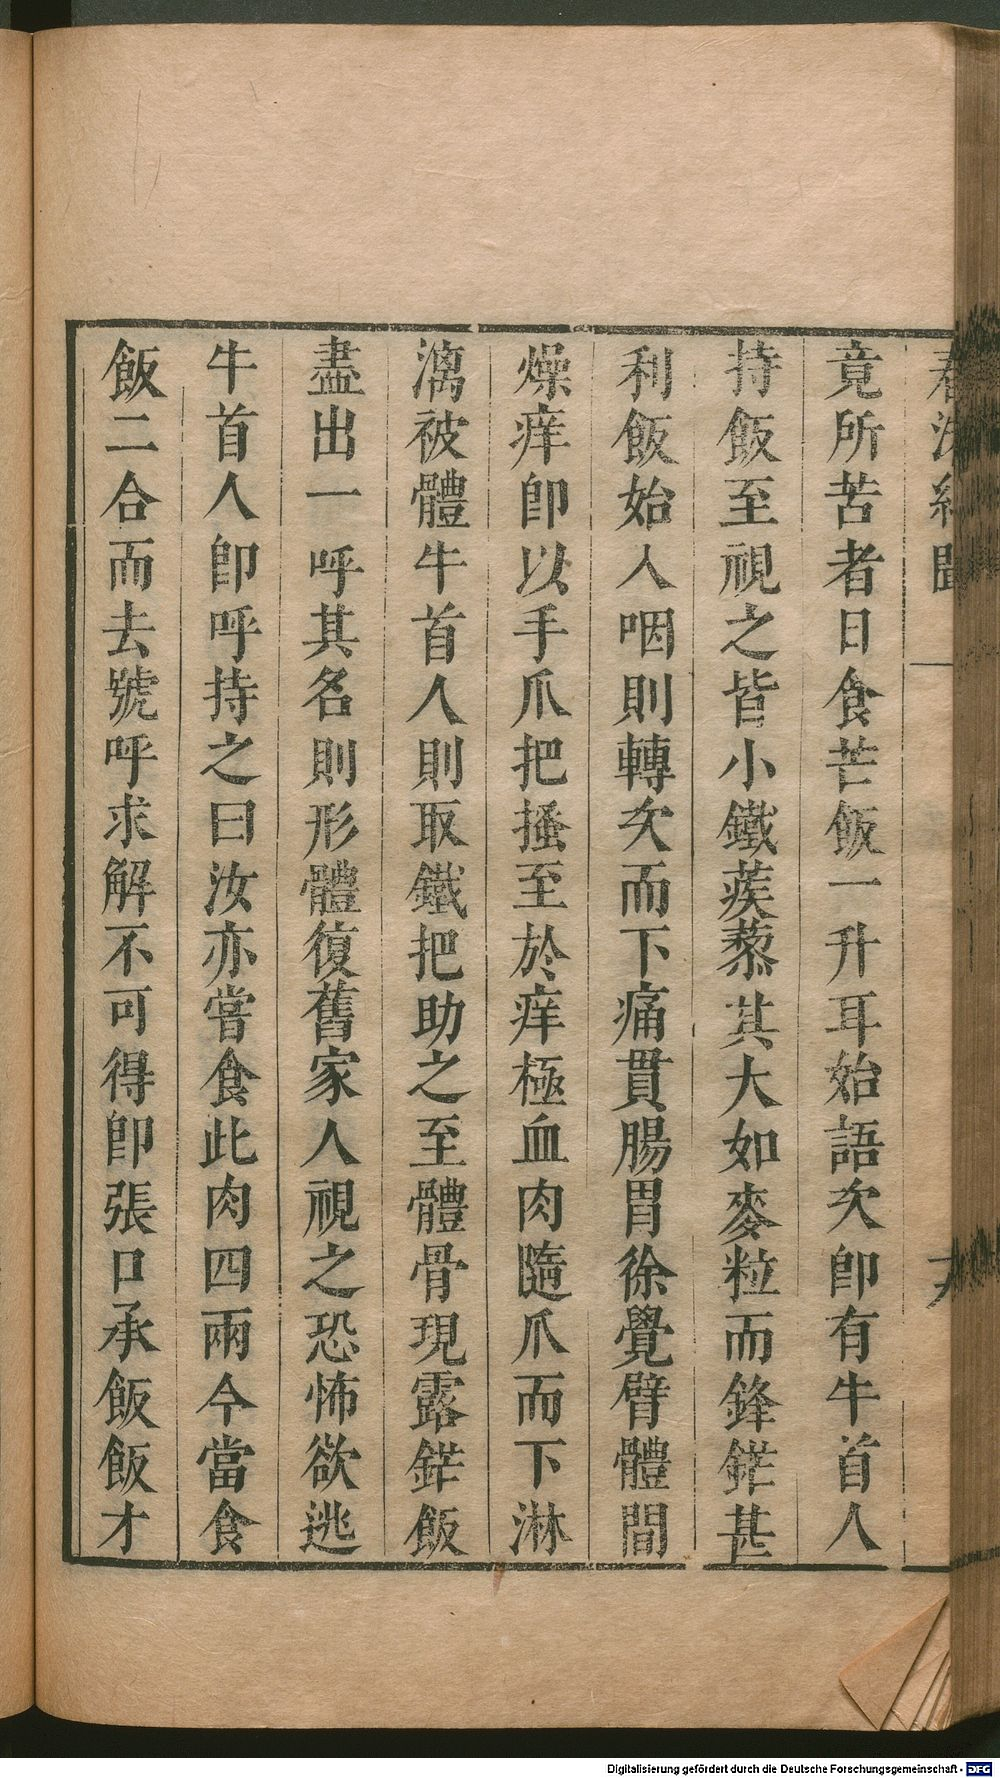 春渚紀聞
竟所苦者日食芒飯一升耳始語次即有牛首人
持飯至視之皆小鐵蒺藜其大如麥粒而鋒鋩甚
利飯始入咽則轉次而下痛貫腸胃徐覺臂體間
燥痒即以手爪把搔至於痒極血肉隨爪而下淋
漓被體牛首人則取鐵把助之至體骨現露鋩飯
盡出一呼其名則形體復舊家人視之恐怖欲逃
牛首人即呼持之曰汝亦嘗食此肉四兩今當食
飯二合而去號呼求解不可得即張口承飯飯才
Digitalisierung gefördert durch die Deutsche Forschungsgemeinschaft - DFG